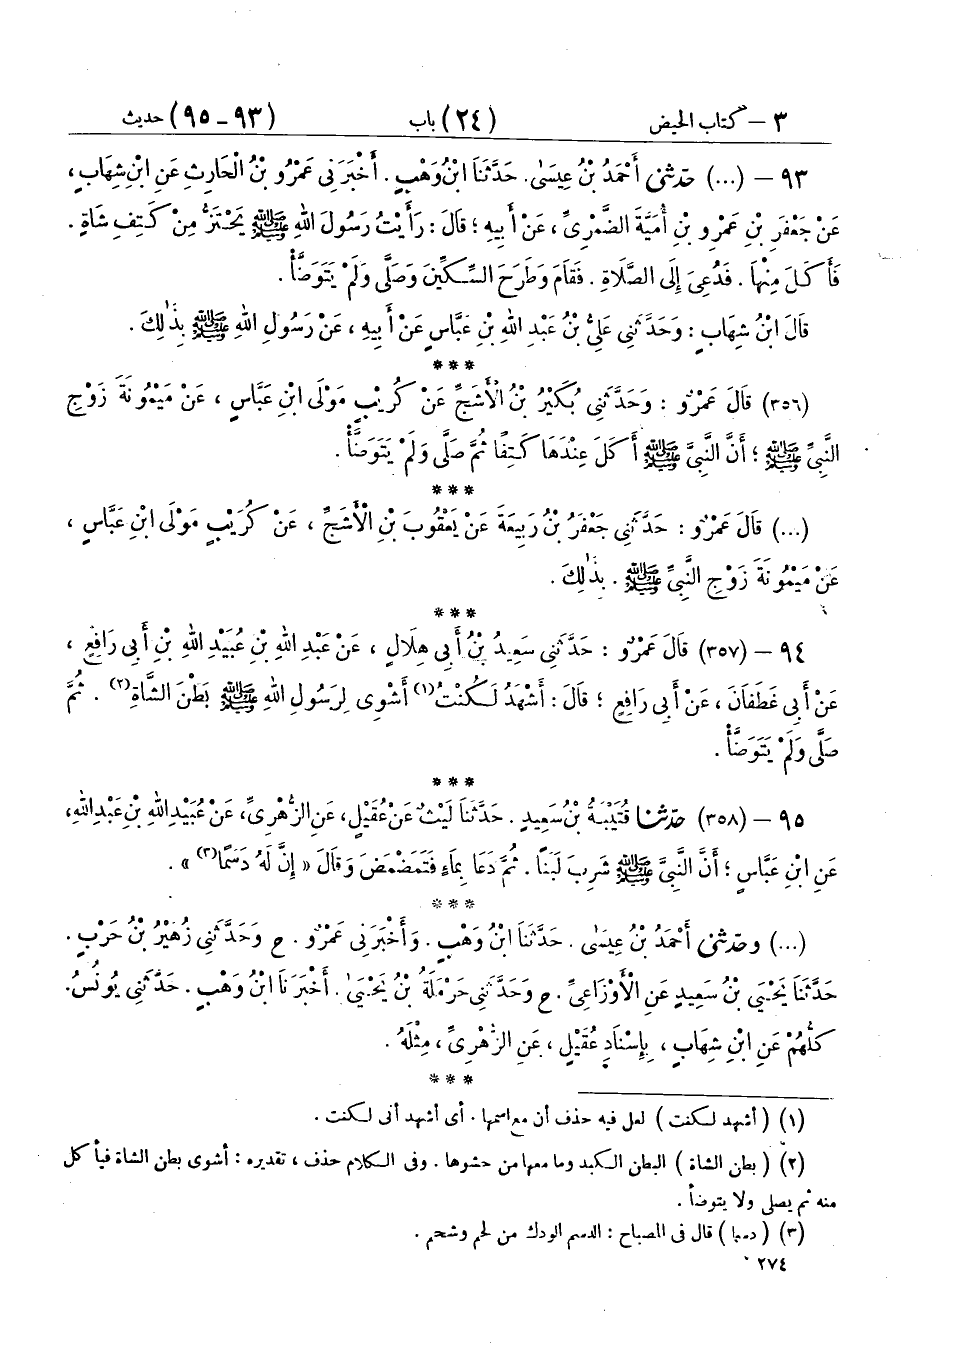 ٣ – كتاب الحيض (٢٤) باب (٩٣ – ٩٥) حديث
٩٣ – (...) حَدَّثَنِي أَحْمَدُ بْنُ عِيسَىٰ. حَدَّثَنَا ابْنُ وَهْبٍ. أَخْبَرَنِي عَمْرُو بْنُ الْحَارِثِ عَنِ ابْنِ شِهَابٍ،
عَنْ جَعْفَرِ بْنِ عَمْرِو بْنِ أُمَيَّةَ الضَّمْرِيِّ، عَنْ أَبِيهِ؛ قَالَ: رَأَيْتُ رَسُولَ اللهِ ﷺ يَحْتَزُّ مِنْ كَتِفِ شَاةٍ.
فَأَكَلَ مِنْهَا. فَدُعِيَ إِلَى الصَّلَاةِ. فَقَامَ وَطَرَحَ السِّكِّينَ وَصَلَّى وَلَمْ يَتَوَضَّأْ.
قَالَ ابْنُ شِهَابٍ: وَحَدَّثَنِي عَلِيُّ بْنُ عَبْدِ اللهِ بْنِ عَبَّاسٍ عَنْ أَبِيهِ، عَنْ رَسُولِ اللهِ ﷺ بِذٰلِكَ.
***
(٣٥٦) قَالَ عَمْرٌو: وَحَدَّثَنِي بُكَيْرُ بْنُ الْأَشَجِّ عَنْ كُرَيْبٍ مَوْلَى ابْنِ عَبَّاسٍ، عَنْ مَيْمُونَةَ زَوْجِ
النَّبِيِّ ﷺ؛ أَنَّ النَّبِيَّ ﷺ أَكَلَ عِنْدَهَا كَتِفًا ثُمَّ صَلَّى وَلَمْ يَتَوَضَّأْ.
***
(...) قَالَ عَمْرٌو: حَدَّثَنِي جَعْفَرُ بْنُ رَبِيعَةَ عَنْ يَعْقُوبَ بْنِ الْأَشَجِّ، عَنْ كُرَيْبٍ مَوْلَى ابْنِ عَبَّاسٍ،
عَنْ مَيْمُونَةَ زَوْجِ النَّبِيِّ ﷺ. بِذٰلِكَ.
***
٩٤ – (٣٥٧) قَالَ عَمْرٌو: حَدَّثَنِي سَعِيدُ بْنُ أَبِي هِلَالٍ، عَنْ عَبْدِ اللهِ بْنِ عُبَيْدِ اللهِ بْنِ أَبِي رَافِعٍ،
عَنْ أَبِي غَطَفَانَ، عَنْ أَبِي رَافِعٍ؛ قَالَ: أَشْهَدُ لَكُنْتُ(١) أَشْوِى لِرَسُولِ اللهِ ﷺ بَطْنَ الشَّاةِ(٢). ثُمَّ
صَلَّى وَلَمْ يَتَوَضَّأْ.
***
٩٥ – (٣٥٨) حَدَّثَنَا قُتَيْبَةُ بْنُ سَعِيدٍ. حَدَّثَنَا لَيْثٌ عَنْ عُقَيْلٍ، عَنِ الزُّهْرِيِّ، عَنْ عُبَيْدِ اللهِ بْنِ عَبْدِ اللهِ،
عَنِ ابْنِ عَبَّاسٍ؛ أَنَّ النَّبِيَّ ﷺ شَرِبَ لَبَنًا. ثُمَّ دَعَا بِمَاءٍ فَتَمَضْمَضَ وَقَالَ «إِنَّ لَهُ دَسَمًا(٣)».
***
(...) وحَدَّثَنِي أَحْمَدُ بْنُ عِيسَىٰ. حَدَّثَنَا ابْنُ وَهْبٍ. وَأَخْبَرَنِي عَمْرٌو. ح وَحَدَّثَنِي زُهَيْرُ بْنُ حَرْبٍ.
حَدَّثَنَا يَحْيَىٰ بْنُ سَعِيدٍ عَنِ الْأَوْزَاعِيِّ. ح وَحَدَّثَنِي حَرْمَلَةُ بْنُ يَحْيَىٰ. أَخْبَرَنَا ابْنُ وَهْبٍ. حَدَّثَنِي يُونُسُ.
كُلُّهُمْ عَنِ ابْنِ شِهَابٍ، بِإِسْنَادِ عُقَيْلٍ، عَنِ الزُّهْرِيِّ، مِثْلَهُ.
***
(١) (أشهد لكنت) لعل فيه حذف أن مع اسمها. أى أشهد أنى لكنت.
(٢) (بطن الشاة) البطن الكبد وما معها من حشوها. وفى الكلام حذف، تقديره: أشوى بطن الشاة فيأكل
منه ثم يصلى ولا يتوضأ.
(٣) (دسما) قال فى المصباح: الدسم الودك من لحم وشحم.
٢٧٤